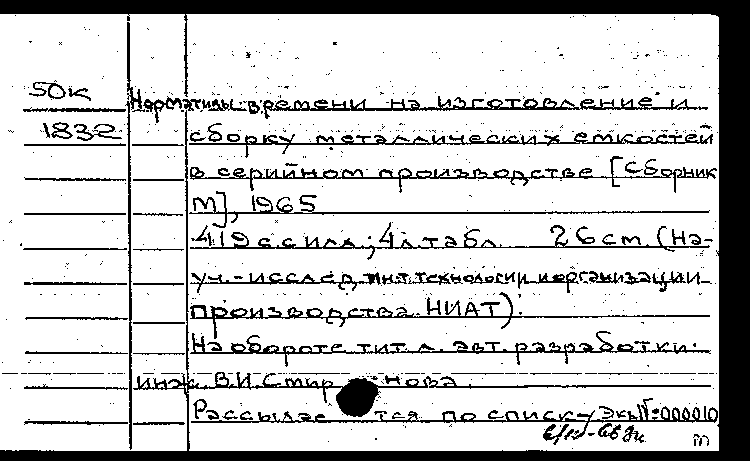 50к Нормативы времени на изготовление и
1832 сборку металлических емкостей
в серийном производстве [Сборник
М], 1965
419 с с илл; 4 л табл 26 cm. (На-
уч.-исслед инт технологии и организации
производства НИАТ).
На обороте тит л. авт. разработки:
инж В.И. Смирнова.
Рассылается по списку Экз №000010
м